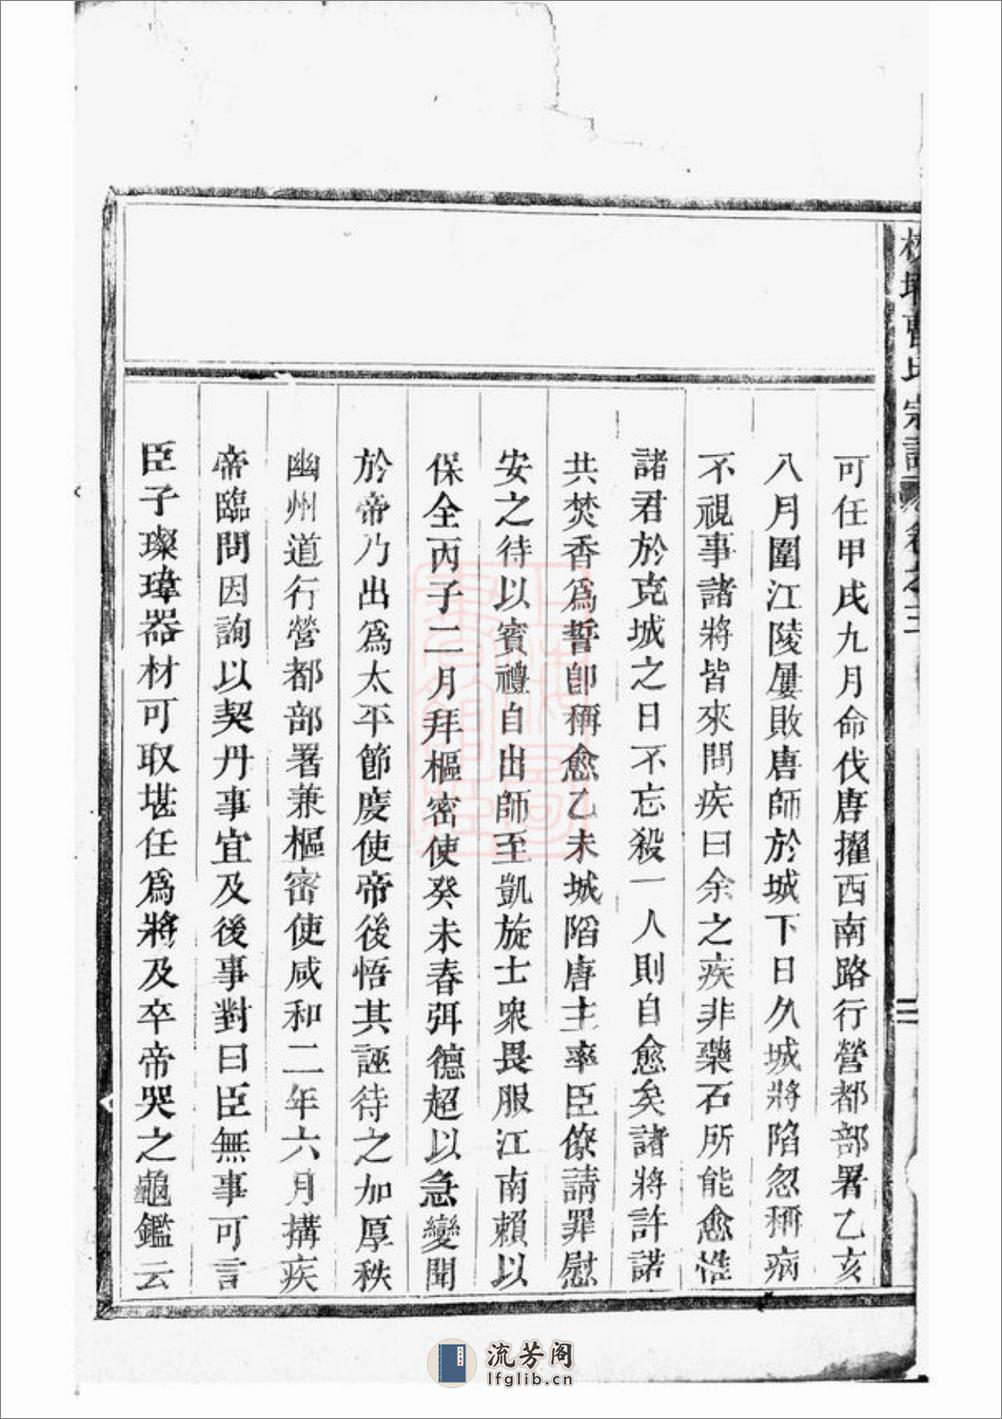 曹氏宗譜
可任甲戌九月命伐唐擢西南路行營都部署乙亥
八月圍江陵屢敗唐師於城下日久城將陷忽稱病
不視事諸將皆來問疾曰余之疾非藥石所能愈惟
諸君於克城之日不忘殺一人則自愈矣諸將許諾
共焚香爲誓卽稱愈乙未城陷唐主率臣僚請罪慰
安之待以賓禮自出師至凱旋士衆畏服江南賴以
保全丙子二月拜樞密使癸未春弭德超以急變聞
於帝乃出爲太平節度使帝後悟其誣待之加厚秩
幽州道行營都部署兼樞密使咸和二年六月搆疾
帝臨問因詢以契丹事宜及後事對曰臣無事可言
臣子璨瑋器材可取堪任爲將及卒帝哭之龜鑑云
流芳阁
lfglib.cn